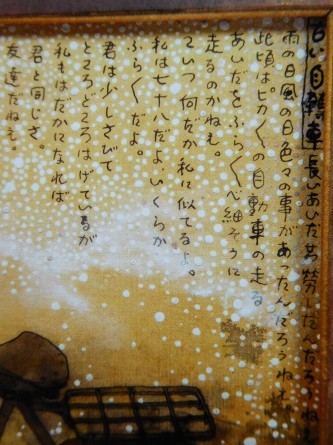 古い自轉車 長いあいだ苦労したんだろうねえ
雨の日風の日色々の事があったんだろうねえ
此頃はピカ〱の自動車の走る
あいだをふら〱心細そうに
走るのかねえ。
こいつ何だか私に似てるよ。
私は七十八だよ、いくらか
ふらくだよ。
君は少しさびて
ところどころはげているが
私もはだかになれば
君と同じさ。
友達だねえ。